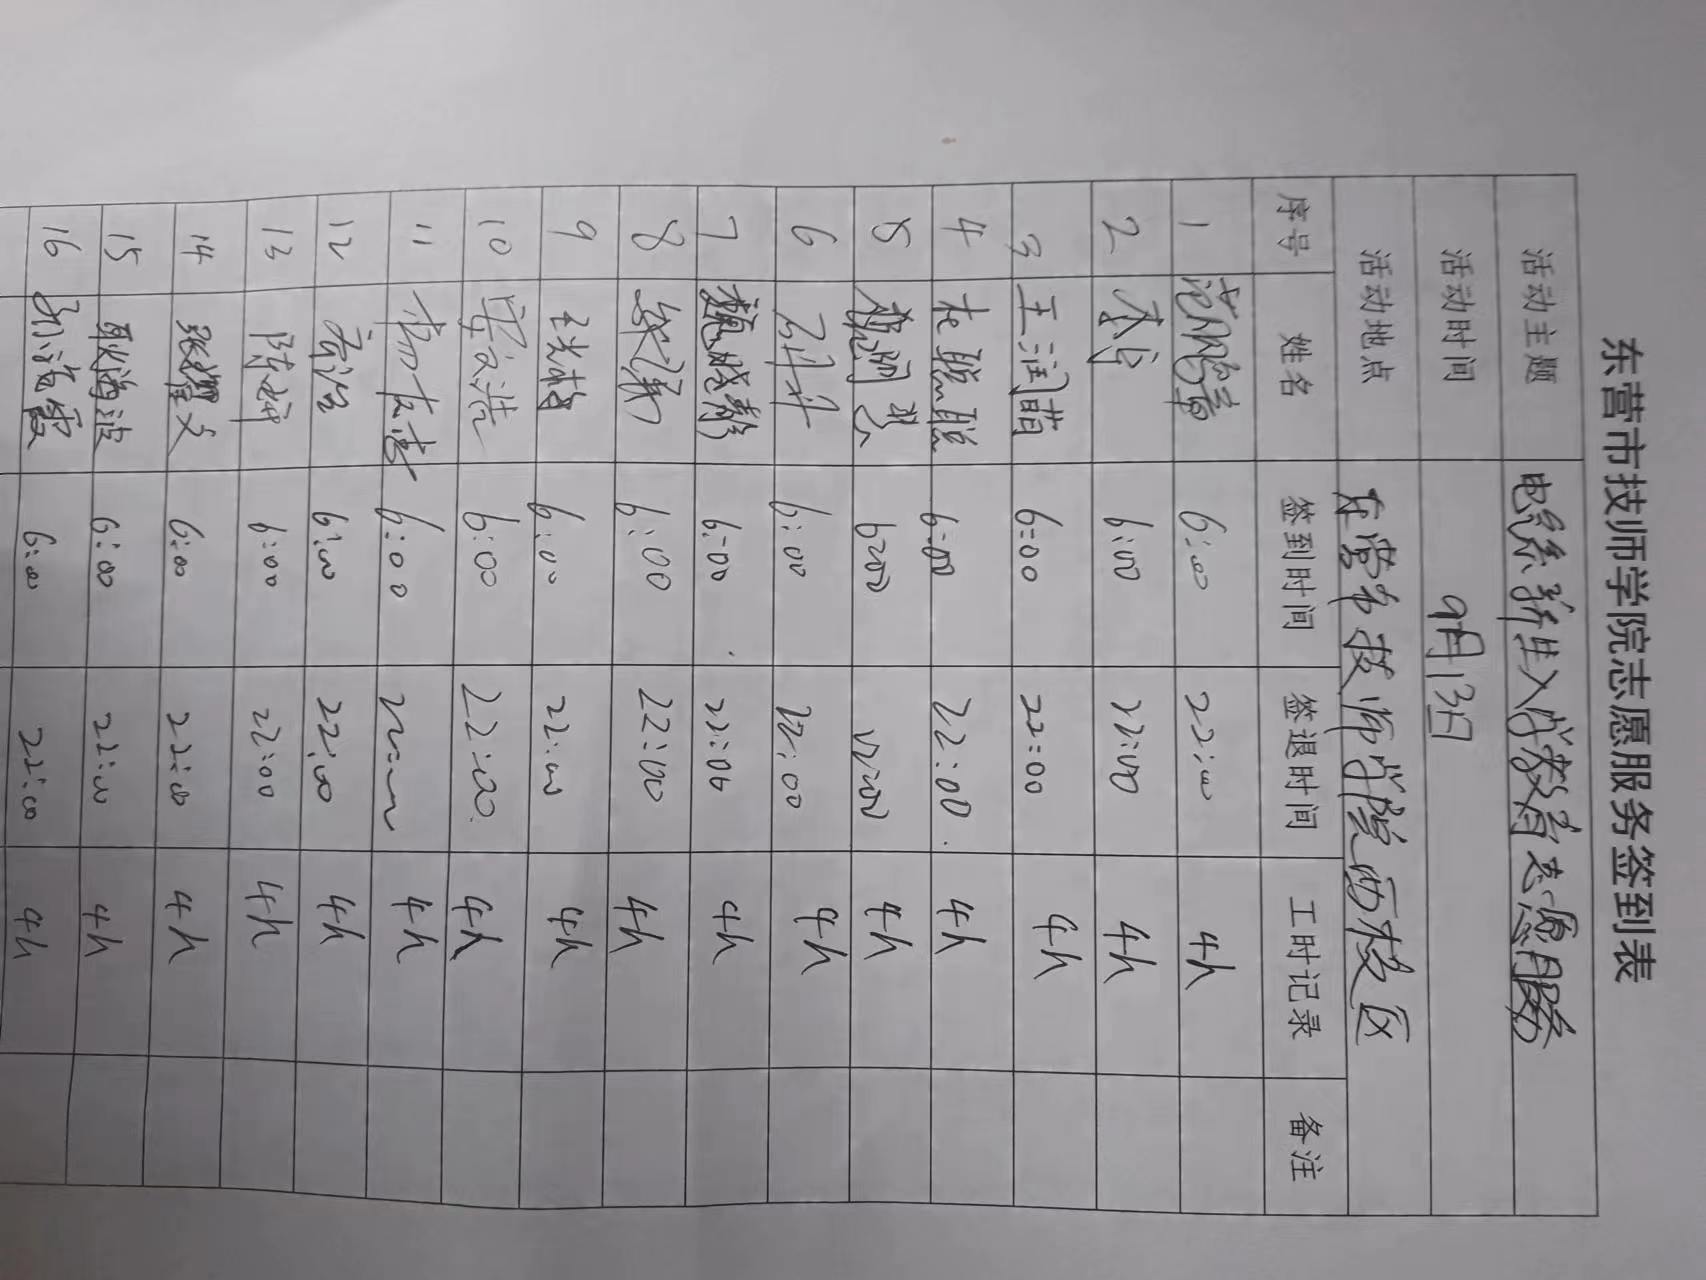 东营市技师学院志愿服务签到表
活动主题 电系新生入学教育志愿服务
活动时间 9月13日
活动地点 东营市技师学院西校区
序号 姓名 签到时间 签退时间 工时记录 备注
1 6:00 22:00 4h
2 6:00 22:00 4h
3 王润苗 6:00 22:00 4h
4 聪聪 6:00 22:00 4h
5 6:00 22:00 4h
6 6:00 22:00 4h
7 魏晓静 6:00 22:00 4h
8 6:00 22:00 4h
9 6:00 22:00 4h
10 文浩 6:00 22:00 4h
11 6:00 4h
12 6:00 22:00 4h
13 陈妍 6:00 22:00 4h
14 张耀文 6:00 22:00 4h
15 耿海波 6:00 22:00 4h
16 6:00 22:00 4h